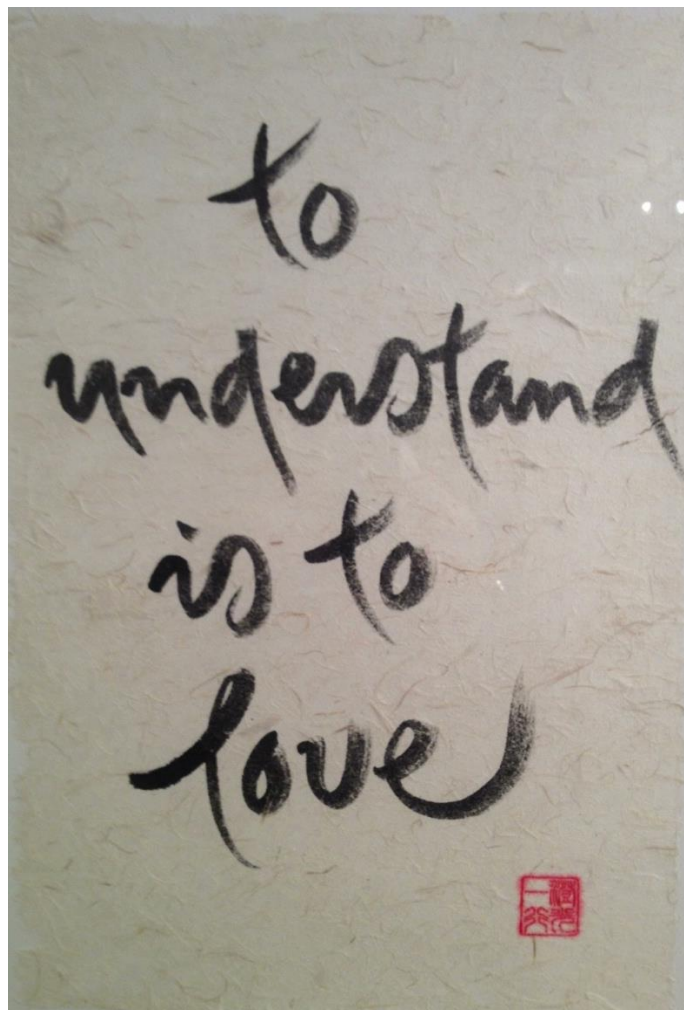 to
understand
is to
love